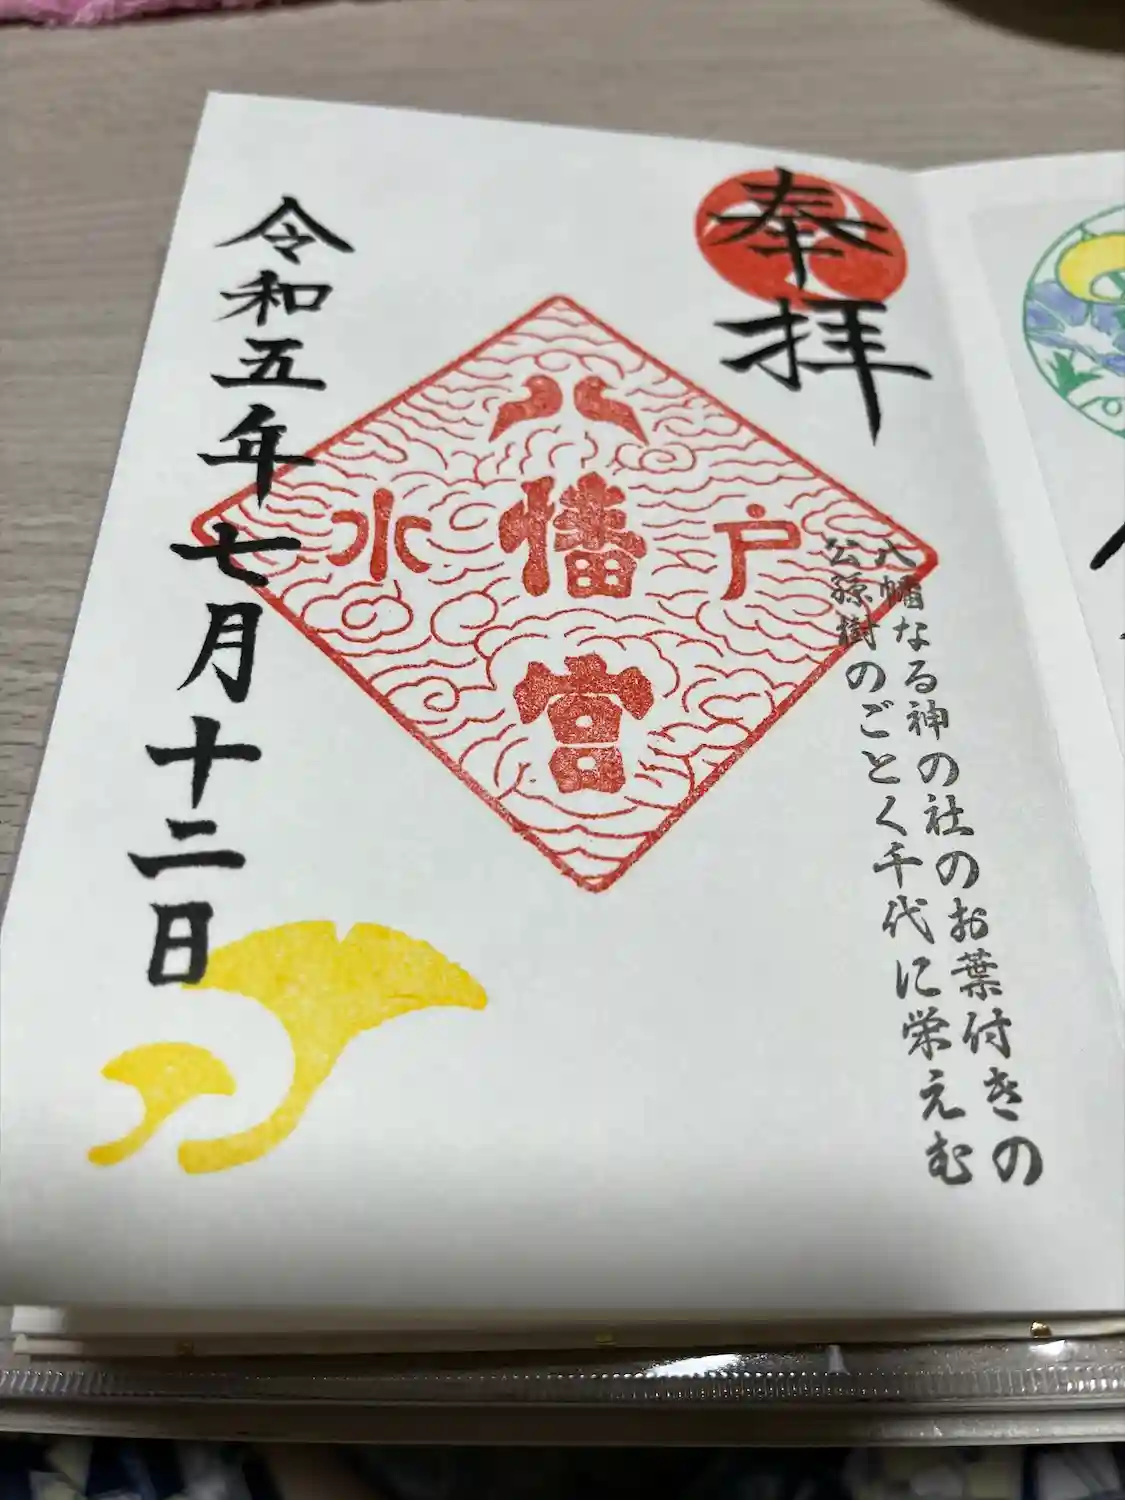 奉拝
八幡なる神の社のお葉付きの
公孫樹のごとく千代に栄えむ
水戸
八幡宮
令和五年七月十二日